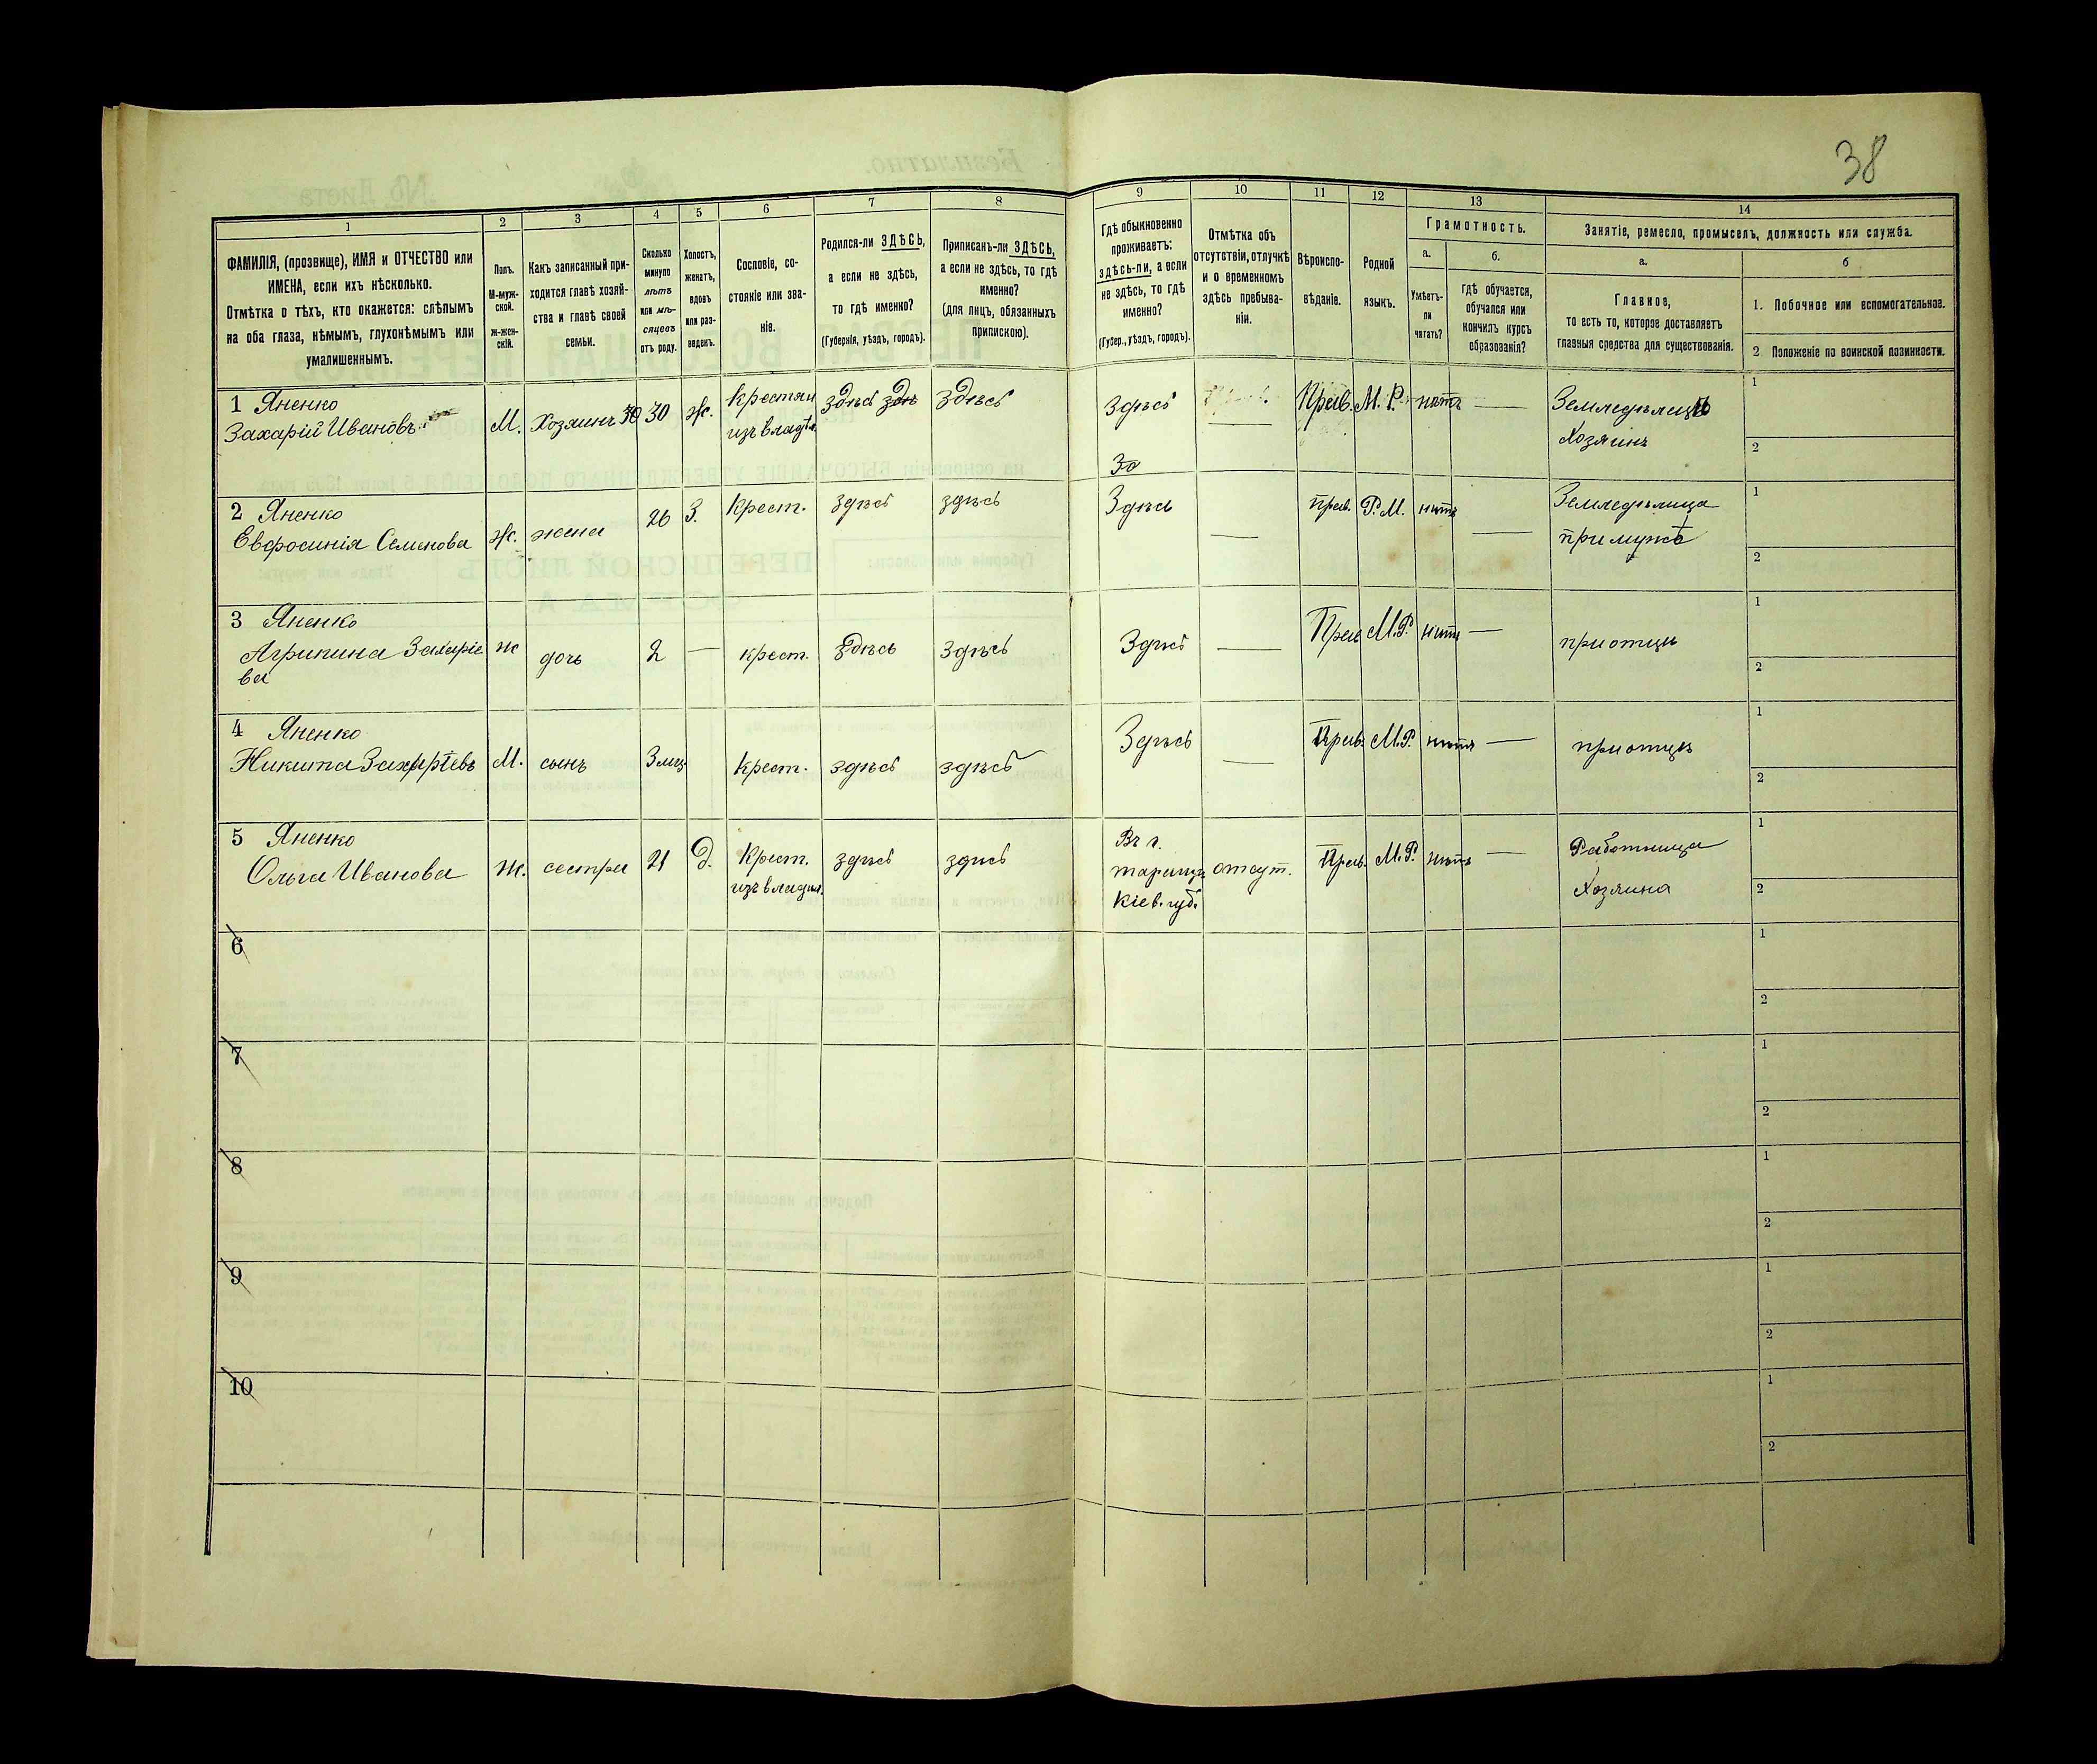 38
1
2
3
4
5
6
7
8
9
10
11
12
13
14
ФАМИЛІЯ, (прозвище), ИМЯ и ОТЧЕСТВО или
ИМЕНА, если ихъ нѣсколько.
Отмѣтка о тѣхъ, кто окажется: слѣпымъ
на оба глаза, нѣмымъ, глухонѣмымъ или
умалишеннымъ.
Полъ.
М-муж-
ской.
ж-жен-
скій.
Какъ записанный при-
ходится главѣ хозяй-
ства и главѣ своей
семьи.
Сколько
минуло
лѣтъ
или мѣ-
сяцевъ
отъ роду.
Холостъ,
женатъ,
вдовъ
или раз-
веденъ.
Сословіе, со-
стояніе или зва-
ніе.
Родился-ли ЗДѢСЬ,
а если не здѣсь,
то гдѣ именно?
(Губернія, уѣздъ, городъ).
Приписанъ-ли ЗДѢСЬ,
а если не здѣсь, то гдѣ
именно?
(для лицъ, обязанныхъ
припискою).
Гдѣ обыкновенно
проживаетъ:
здѣсь-ли, а если
не здѣсь, то гдѣ
именно?
(Губер., уѣздъ, городъ).
Отмѣтка объ
отсутствіи, отлучкѣ
и о временномъ
здѣсь пребыва-
ніи.
Вѣроиспо-
вѣданіе.
Родной
языкъ.
Грамотность.
а.
Умѣетъ-
ли
читать?
б.
гдѣ обучается,
обучался или
кончилъ курсъ
образованія?
Занятіе, ремесло, промыселъ, должность или служба.
а.
Главное,
то есть то, которое доставляетъ
главныя средства для существованія.
б
1. Побочное или вспомогательное.
2 Положеніе по воинской повинности.
1 Яненко
Захарій Ивановъ
М.
Хозяинъ
30
ж.
крестян
изъ владѣл.
здѣсь
здѣсь
здѣсь
Прав.
М. Р.
нѣтъ
Земледѣлецъ
Хозяинъ
1
2
2 Яненко
Евфросинія Семенова
ж.
жена
26
З.
Крест.
здѣсь
здѣсь
Здѣсь
прав.
Р. М.
нѣтъ
Земледѣлица
при мужѣ
1
2
3 Яненко
Агрипина Захаріе
ва
ж
дочь
2
крест.
здѣсь
здѣсь
Здѣсь
Прав
М.Р.
нѣтъ
при отцѣ
1
2
4 Яненко
Никита Захаріевъ
М.
сынъ
3 мѣс.
Крест.
здѣсь
здѣсь
Здѣсь
Прав.
М.Р.
нѣтъ
при отцѣ
1
2
5 Яненко
Ольга Иванова
Ж.
сестра
21
Д.
Крест.
изъ владѣл.
здѣсь
здѣсь
Въ г.
таращѣ
Кіев. губ.
отсут.
Прав.
М.Р.
нѣтъ
Работница
Хозяина
1
2
6
1
2
7
1
2
8
1
2
9
1
2
10
1
2